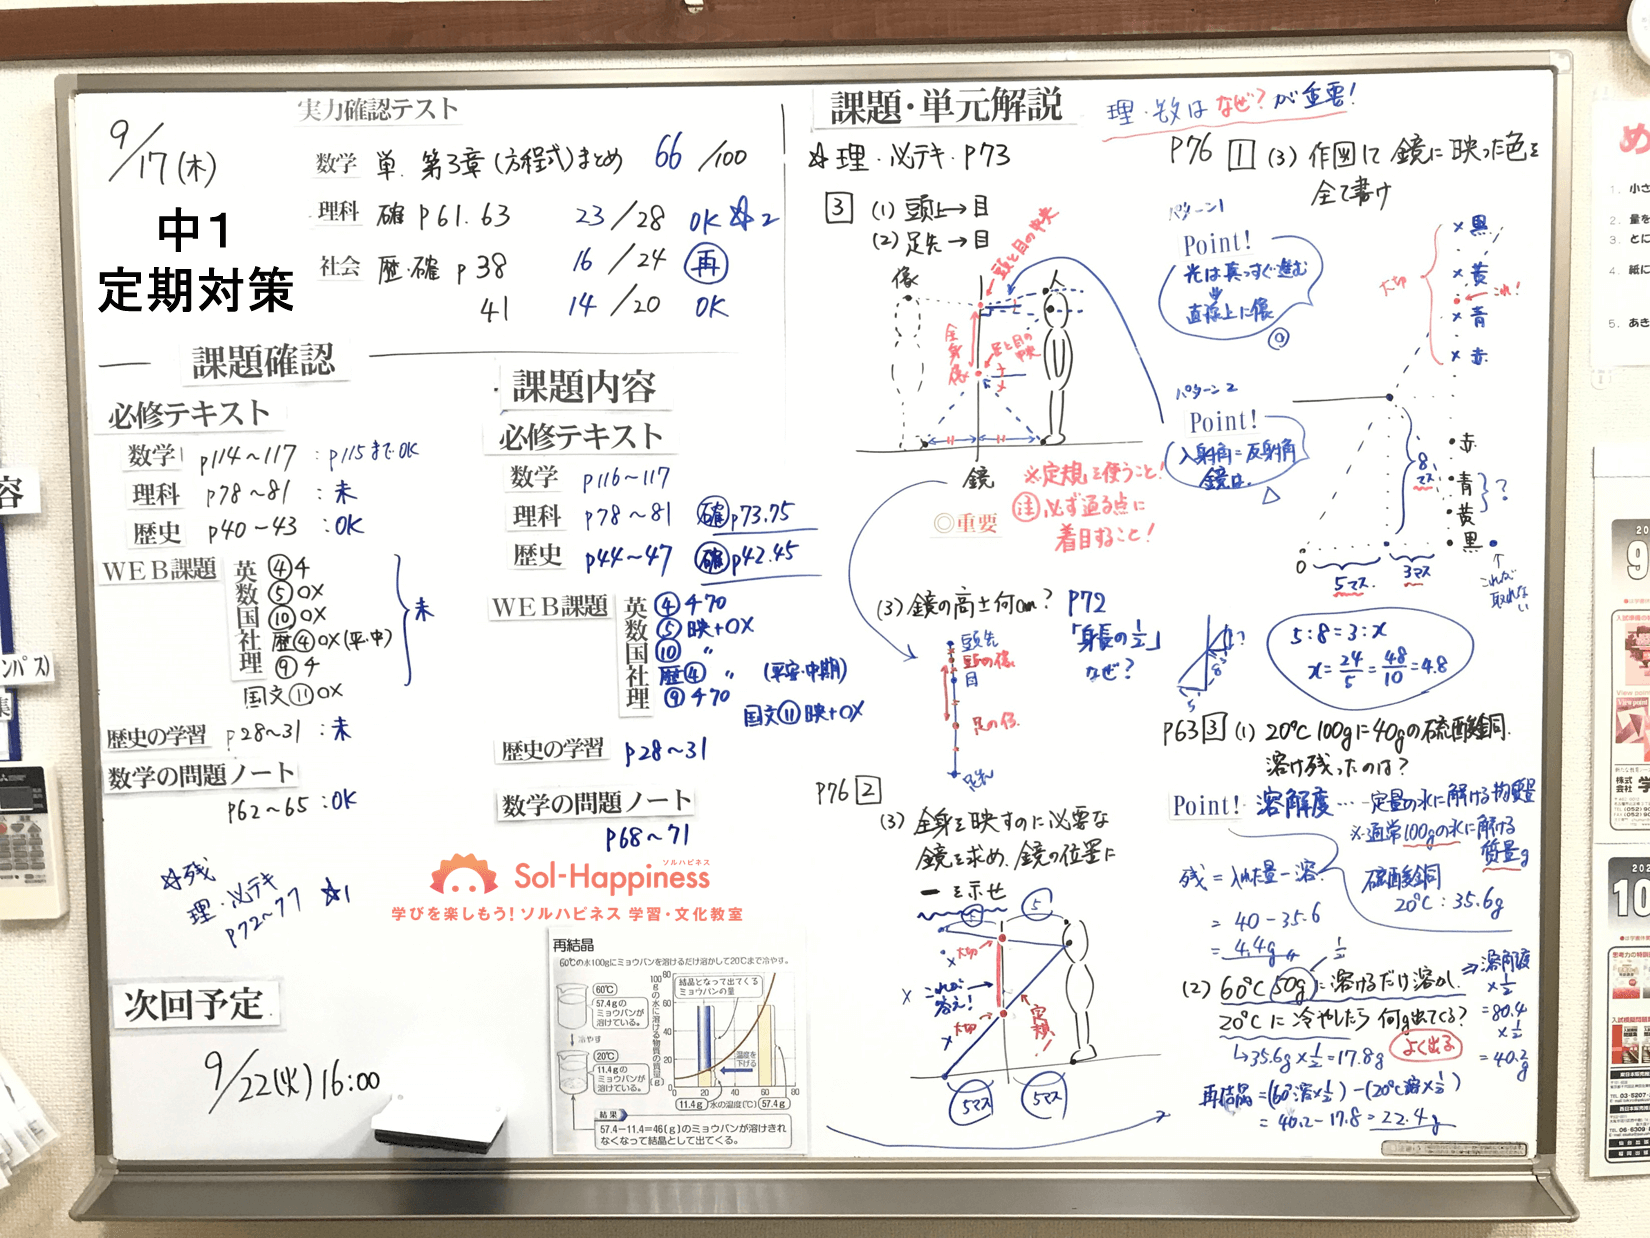 9/17(木)
中1
定期対策
実力確認テスト
数学 単. 第3章(方程式)まとめ 66 /100
理科 確 P61.63 23/28 OK ☆2
社会 歴・確 P38 16/24 再
41 14/20 OK
課題確認
必修テキスト
数学 P114～117 : P115までOK
理科 P78～81 : 未
歴史 P40～43 : OK
WEB課題
英 ④4
数 ⑤OX
国 ⑩OX
社 歴④OX(平・中)
理 ⑨4
国文⑪OX
未
歴史の学習 P28～31 : 未
数学の問題ノート
P62～65 : OK
☆残
理・必テキ
P72～77 ☆1
次回予定
9/22(火)16:00
課題内容
必修テキスト
数学 P116～117
理科 P78～81 確P73.75
歴史 P44～47 確P42.45
WEB課題
英 ④470
数 ⑤映+OX
国 ⑩ 〃
社 歴④ 〃 (平安・中期)
理 ⑨470
国文⑪映+OX
歴史の学習 P28～31
数学の問題ノート
P68～71
ソルハピネス
Sol-Happiness
学びを楽しもう! ソルハピネス 学習・文化教室
再結晶
60℃の水100gにミョウバンを溶けるだけ溶かして20℃まで冷やす。
60℃
57.4gのミョウバンが溶けている。
冷やす
20℃
11.4gのミョウバンが溶けている。
100gの水に溶ける物質の質量(g)
結晶となって出てくるミョウバンの量
温度を下げる
80
60
40
20
0 20 40 60 80
11.4g 水の温度(℃) 57.4g
結果
57.4－11.4＝46(g)のミョウバンが溶けきれなくなって結晶として出てくる。
課題・単元解説
理・数は なぜ? が重要!
☆理・必テキ・P73
3 (1) 頭上→目
(2) 足先→目
像
人
頭と目の中央
全身像
足と目の中央
鏡
※定規を使うこと!
注 必ず通る点に
着目すること!
◎重要
(3) 鏡の高さ何cm? P72
「身長の1/2」
なぜ?
頭先
頭の像
目
足の像
足先
P76 2
(3) 全身を映すのに必要な
鏡を求め、鏡の位置に
ーを示せ
5
大切
これが
答え!
大切
定規!
5マス 5マス
P76 1 (3) 作図にて 鏡に映った色を
全て書け
パターン1
Point!
光は真っすぐ進む
直線上に像
大切
黒
黄
これ!
青
赤
パターン2
Point!
入射角=反射角
鏡は.
8マス
赤
青
黄
黒
?
5マス 3マス
これが
取れない
5:8=3:x
x=24/5=48/10=4.8
P63 3 (1) 20℃ 100gに40gの硫酸銅.
溶け残ったのは?
Point! 溶解度 … 一定量の水に解ける物質量
※通常100gの水に解ける
質量g
残 = 入れた量－溶.
= 40－35.6
= 4.4g
硫酸銅
20℃ : 35.6g
(2) 60℃ 50gに溶けるだけ溶かし.
20℃に冷やしたら何g出てくる?
↳35.6g×1/2=17.8g よく出る
⇒溶解度
×1/2
=80.4
×1/2
=40.2g
再結晶=(60°溶×1/2)－(20℃溶×1/2)
= 40.2－17.8=22.4g